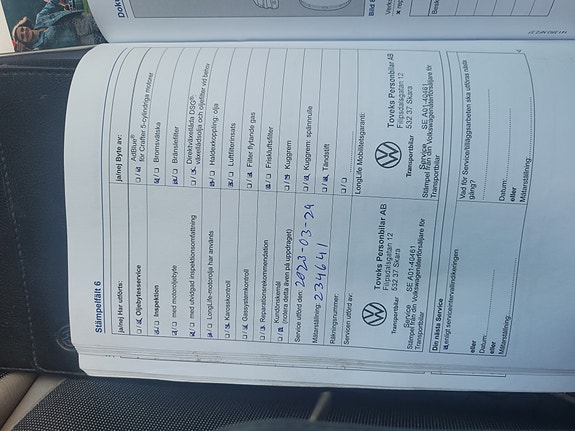 Stämpelfält 6
ja/nej Har utförts:
Oljebytesservice
Inspektion
med motoroljebyte
med utvidgad inspektionsomfattning
LongLife-motorolja har använts
Karosskontroll
Gassystemkontroll
Reparationsrekommendation
Kundönskemål
(notera detta även på uppdraget)
Service utförd den: 2023-03-24
Mätarställning: 234641
Räkningsnummer:
Servicen utförd av:
Transportbilar
Toveks Personbilar AB
Filipsdalsgatan 12
532 37 Skara
SE A01-40461
Service
Stämpel från din Volkswagenåterförsäljare för
Transportbilar
Din nästa Service
enligt serviceintervallindikeringen
eller
Datum:
eller
Mätarställning:
ja/nej Byte av:
AdBlue®
för Crafter 5-cylindriga motorer
Bromsvätska
Bränslefilter
Direktväxellåda DSG®:
växellådsolja och oljefilter vid behov
Haldexkoppling: olja
Luftfilterinsats
Filter flytande gas
Friskluftsfilter
Kuggrem
Kuggrem: spännrulle
Tändstift
LongLife Mobilitetsgaranti:
Transportbilar
Toveks Personbilar AB
Filipsdalsgatan 12
532 37 Skara
SE A01-40461
Service
Stämpel från din Volkswagenåterförsäljare för
Transportbilar
Vad för Service/tilläggsarbeten ska utföras nästa
gång?
Datum:
eller
Mätarställning: